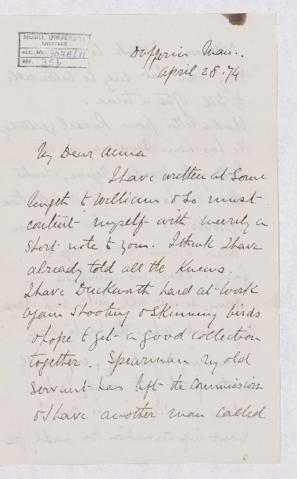 McGILL UNIVERSITY
ARCHIVES
ACC. NO.
REF.
Dufferin Man.
April 28. 74
My Dear Annie
I have written at some
length to William & so must
content myself with merely a
short note to you. I think I have
already told all the knews.
I have Duckworth hard at work
again shooting & skinning birds
& hope to get a good collection
together. Spearman my old
servant has left the commission
& I have another man called